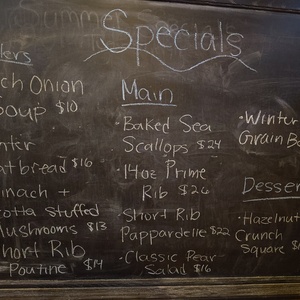 Summer
Specials
ch Onion
Soup $10
nter
atbread $16
inach +
otta Stuffed
Mushrooms $13
Short Rib
Poutine $14
Main
• Baked Sea
Scallops $24
• 14oz Prime
Rib $26
• Short Rib
Pappardelle $22
• Classic Pear
Salad $16
• Winter
Grain Bo
Desse
• Hazelnut
Crunch
Square